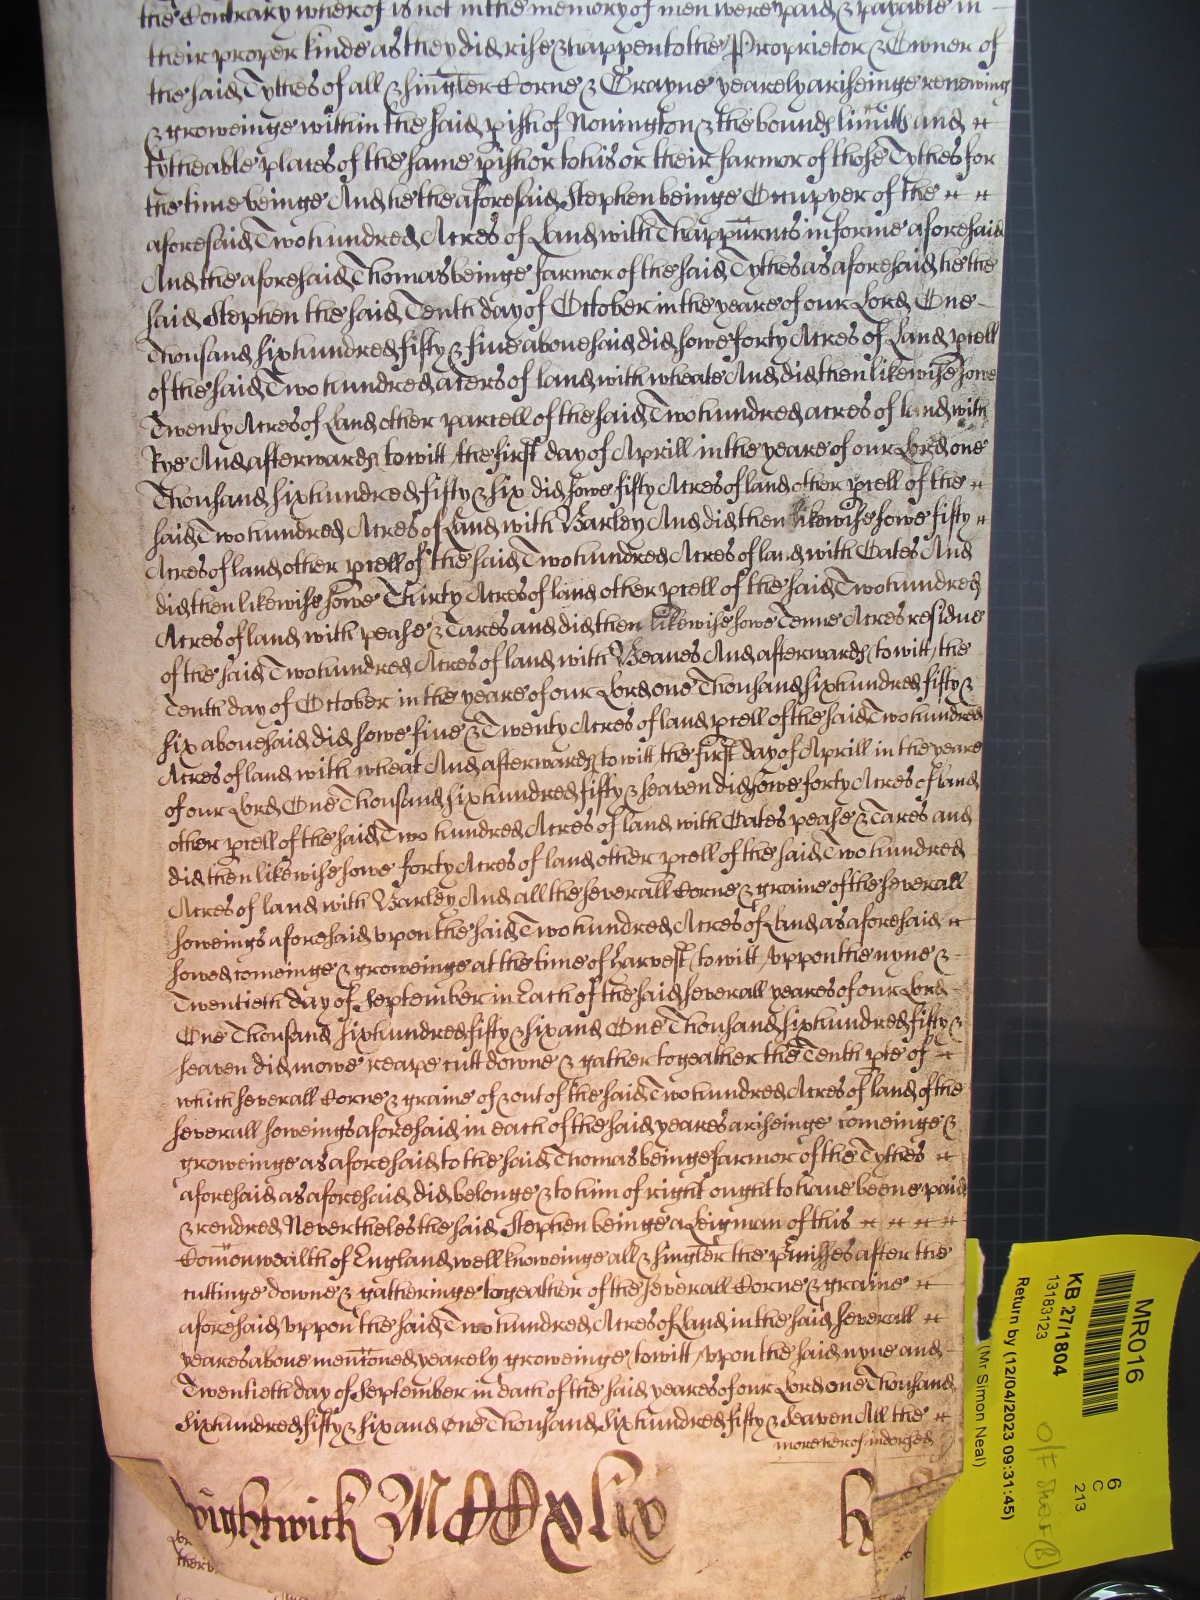 the Contrary wherof is not in the memory of men were paid & payable in
their proper kinde as they did rise & happen to the Proprietor & Owner of
the said Tythes of all & singler Corne & Grayne yearely ariseinge renewing
& groweinge within the said pish of Nonington & the bounds limitts and
tytheable places of the same pish or to his or their farmor of those Tythes for
the time beinge And he the aforesaid Stephen beinge Occupyer of the
aforesaid Two hundred Acres of Land with Thappurtnts in forme aforesaid
And the aforesaid Thomas beinge farmor of the said Tythes as aforesaid he the
said Stephen the said Tenth day of October in the yeare of our Lord One
Thousand six hundred fifty & five abovesaid did sowe forty Acres of Land pcell
of the said Two hundred acers of land with wheate And did then likewise sowe
Twenty Acres of Land other parcell of the said Two hundred acres of land with
Rye And afterwards to witt the first day of Aprill in the yeare of our Lord one
Thousand six hundred fifty & six did sowe fifty Acres of land other pcell of the
said Two hundred Acres of Land with Barley And did then likewise sowe fifty
Acres of land other pcell of the said Two hundred Acres of land with Oates And
did then likewise sowe Thirty Acres of land other pcell of the said Two hundred
Acres of land with pease & Tares and did then likewise sowe Tenne Acres residue
of the said Two hundred Acres of land with Beanes And afterwards to witt the
Tenth day of October in the yeare of our Lord one Thousand six hundred fifty &
six abovesaid did sowe five & Twenty Acres of land pcell of the said Two hundred
Acres of land with wheat And afterwards to witt the first day of Aprill in the yeare
of our Lord One Thousand six hundred fifty & seaven did sowe forty Acres of land
other pcell of the said Two hundred Acres of land with Oates pease & Tares and
did then likewise sowe forty Acres of land other pcell of the said Two hundred
Acres of land with Barley And all the severall Corne & graine of the severall
soweings aforesaid upon the said Two hundred Acres of Land as aforesaid
sowed comeinge & groweinge at the time of harvest to witt uppon the nyne &
Twentieth day of September in Each of the said severall yeares of our Lord
One Thousand six hundred fifty & six and One Thousand six hundred fifty &
seaven did mowe reape cutt downe & gather togeather the Tenth pte of
which severall Corne & graine of & out of the said Two hundred Acres of land of the
severall soweings aforesaid in each of the said yeares ariseinge comeinge &
groweinge as aforesaid to the said Thomas beinge farmor of the Tythes
aforesaid as aforesaid did belonge & to him of right ought to have beene paid
& rendred Nevertheles the said Stephen beinge a Leigman of this
Comonwealth of England well knoweinge all & singler the pmisses after the
cuttinge downe & gatheringe togeather of the severall Corne & graine
aforesaid uppon the said Two hundred Acres of Land in the said severall
yeares above mencioned yearely groweinge to witt upon the said nyne and
Twentieth day of September in each of the said yeares of our Lord one Thousand
Six hundred fifty & six and One Thousand Six hundred fifty & Seaven All the
more herof indorsed
Wightwick MCCxlix
MR016
KB 27/1804
13183123
Return by (12/04/2023 09:31:45)
(Mr Simon Neal)
6
C
213